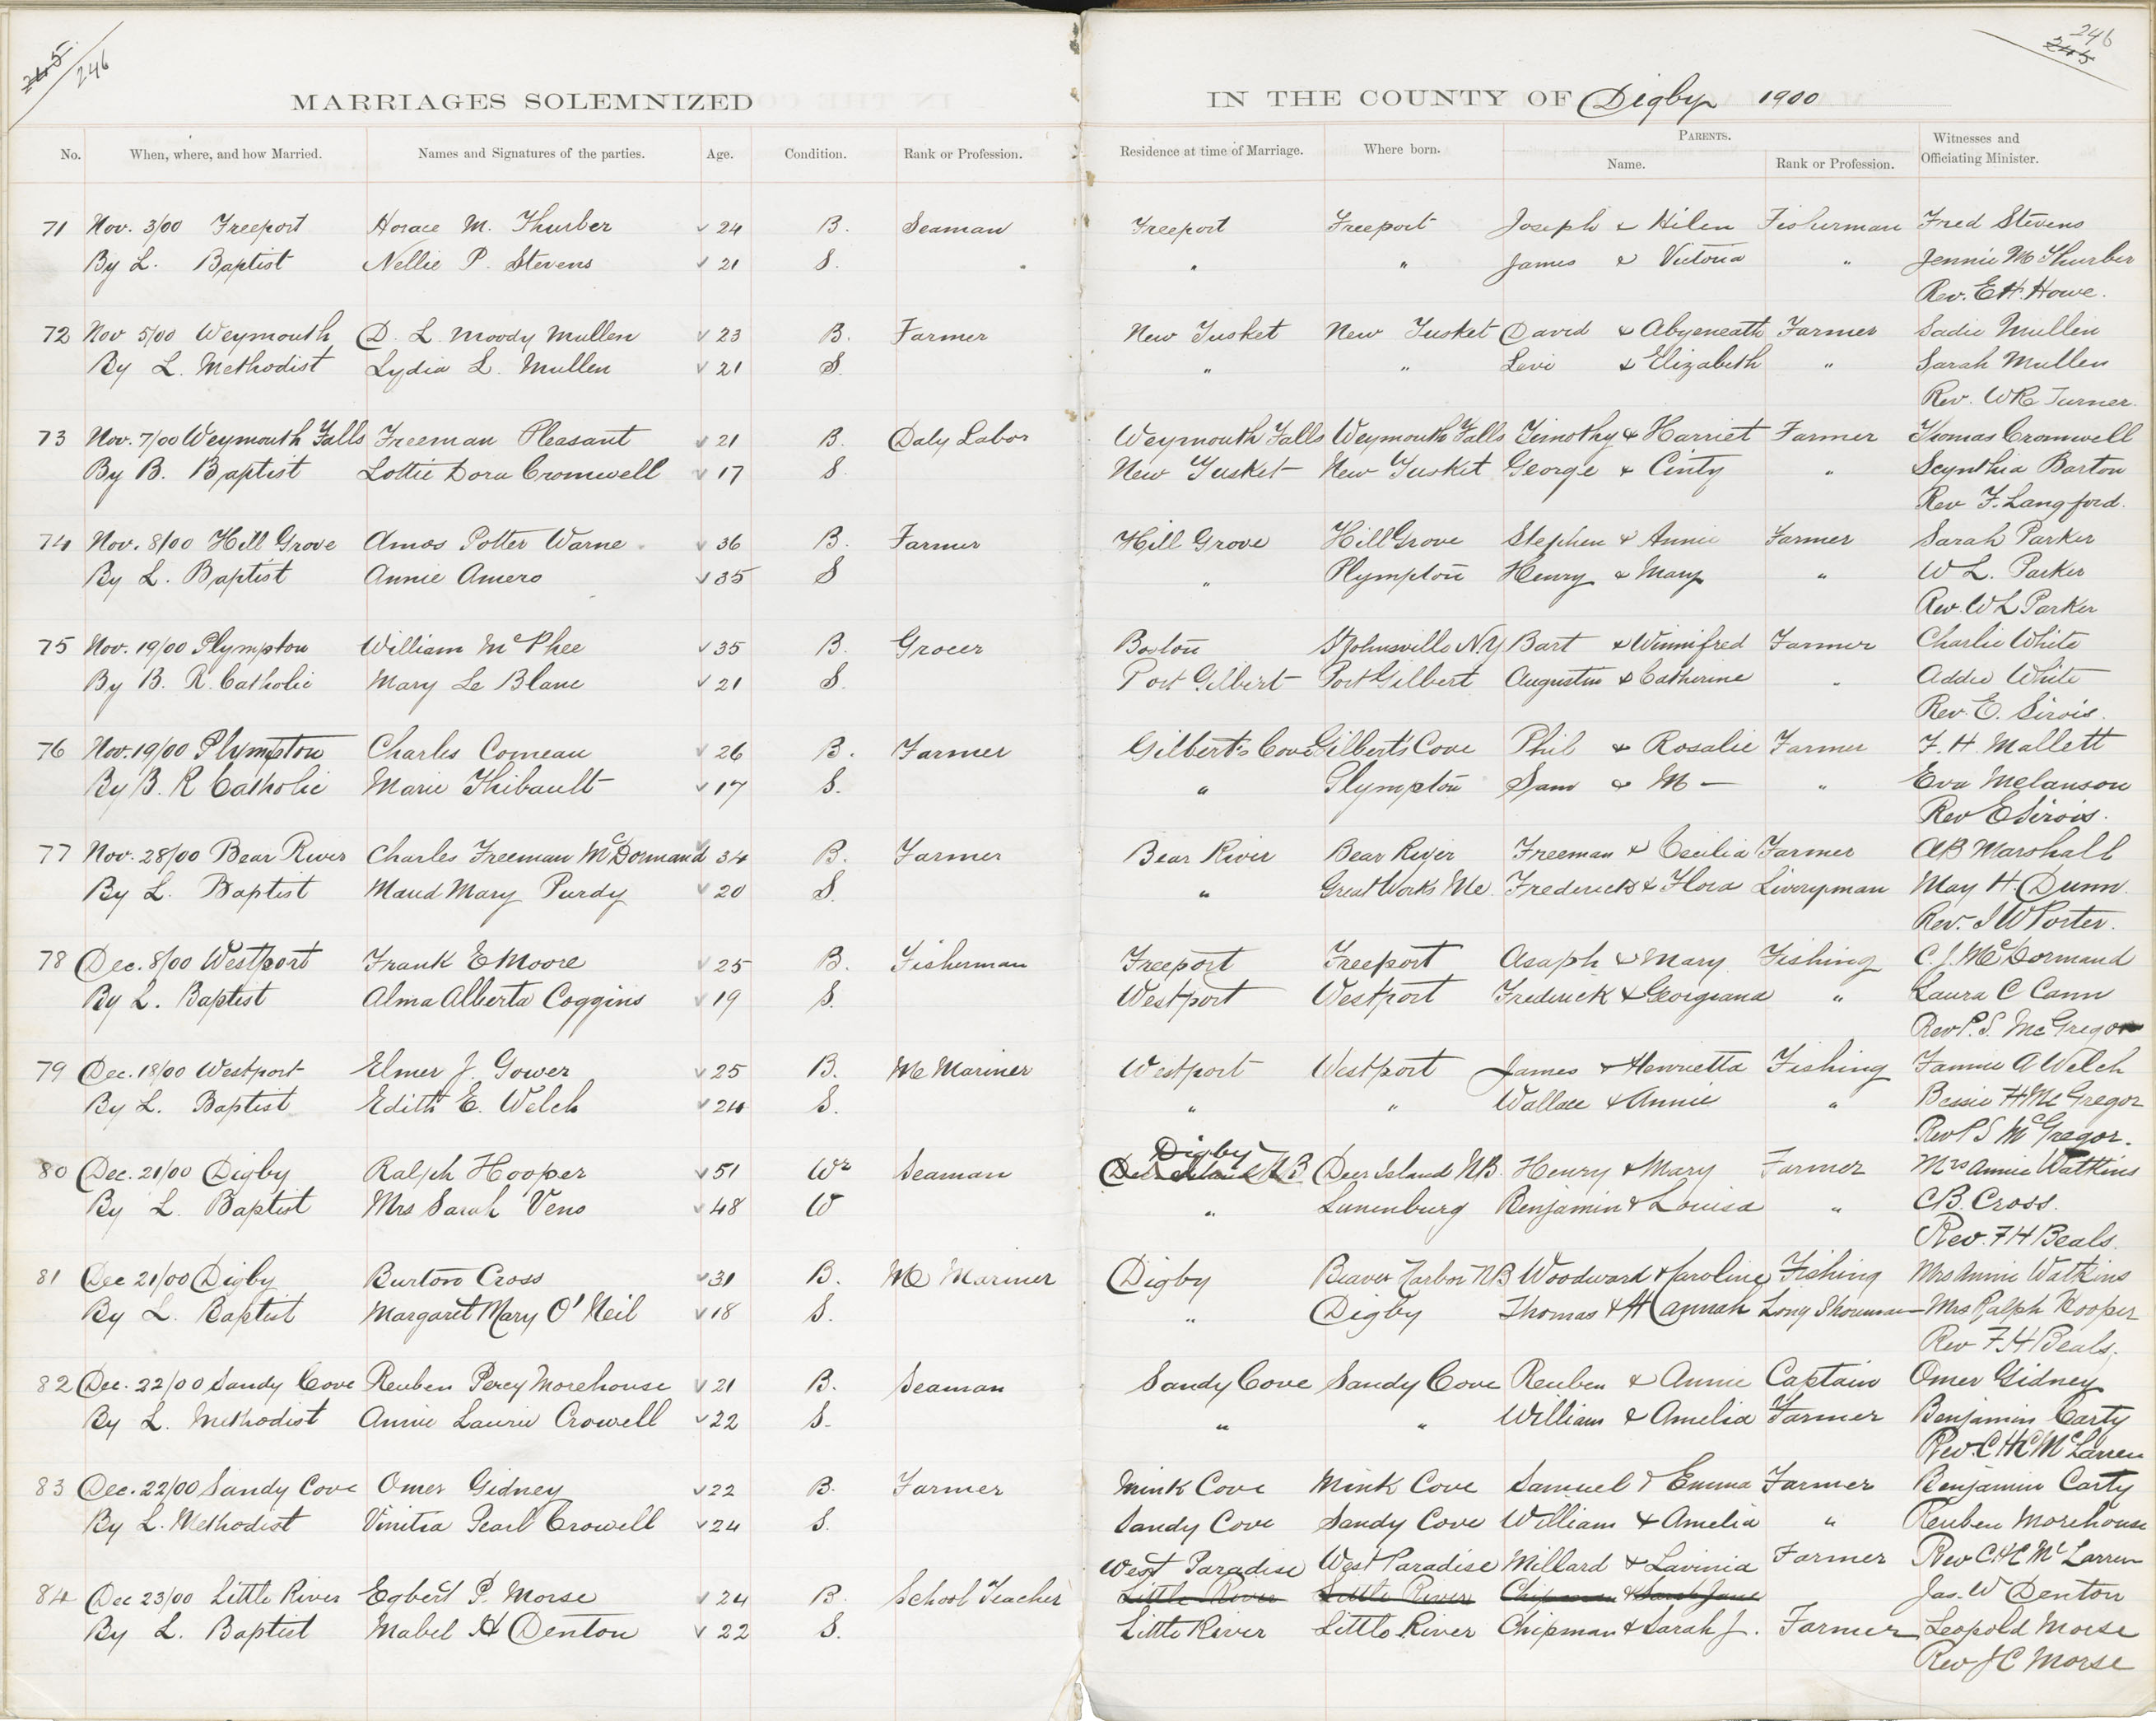 245 246
246 245
MARRIAGES SOLEMNIZED IN THE COUNTY OF Digby 1900
No. When, where, and how Married. Names and Signatures of the parties. Age. Condition. Rank or Profession. Residence at time of Marriage. Where born. PARENTS. Name. Rank or Profession. Witnesses and Officiating Minister.
71 Nov. 3/00 Freeport Horace M. Thurber 24 B. Seaman Freeport Freeport Joseph & Hilen Fisherman Fred Stevens
By L. Baptist Nellie P. Stevens 21 S. " " James & Victoria " Jennie M Thurber
Rev. E H. Howe.
72 Nov 5/00 Weymouth D. L. Moody Mullen 23 B. Farmer New Tusket New Tusket David & Abyeneath Farmer Sadie Mullen
By L. Methodist Lydia L. Mullen 21 S. " " Levi & Elizabeth " Sarah Mullen
Rev. W R Turner.
73 Nov. 7/00 Weymouth Falls Freeman Pleasant 21 B. Daly Labor Weymouth Falls Weymouth Falls Timothy & Harriet Farmer Thomas Cromwell
By B. Baptist Lottie Dora Cromwell 17 S. New Tusket New Tusket George & Cinty " Scynthia Barton
Rev F. Langford.
74 Nov. 8/00 Hill Grove Amos Potter Warne 36 B. Farmer Hill Grove Hill Grove Stephen & Annie Farmer Sarah Parker
By L. Baptist Annie Amero 35 S " Plympton Henry & Mary " W L. Parker
Rev. W L Parker
75 Nov. 19/00 Plympton William McPhee 35 B. Grocer Boston St Johnsville N.Y Bart & Winnifred Farmer Charlie White
By B. R. Catholic Mary Le Blanc 21 S. Port Gilbert Port Gilbert Augustin & Catherine " Addie White
Rev. E. Sirois.
76 Nov. 19/00 Plympton Charles Comeau 26 B. Farmer Gilbert's Cove Gilbert's Cove Phil & Rosalie Farmer F. H. Mallett
By B. R Catholic Marie Thibault 17 S. " Plympton Sam & M — " Eva Melanson
Rev E Sirois.
77 Nov. 28/00 Bear River Charles Freeman McDormand 34 B. Farmer Bear River Bear River Freeman & Cecilia Farmer A B Marshall
By L. Baptist Maud Mary Purdy 20 S. " Great Works Me. Frederick & Flora Liveryman May H. Dunn.
Rev. I W Porter.
78 Dec. 8/00 Westport Frank E Moore 25 B. Fisherman Freeport Freeport Asaph & Mary Fishing C. J. McDormand
By L. Baptist Alma Alberta Coggins 19 S. Westport Westport Frederick & Georgeana " Laura C Cann
Rev P. S. McGregor
79 Dec. 18/00 Westport Elmer J. Gower 25 B. M Mariner Westport Westport James & Henrietta Fishing Fannie A Welch
By L. Baptist Edith E. Welch 24 S. " " Wallace & Annie " Bessie H McGregor
Rev P S McGregor.
Digby
80 Dec. 21/00 Digby Ralph Hooper 51 Wr Seaman Deer Island N B Deer Island N.B. Henry & Mary Farmer Mrs Annie Watkins
By L. Baptist Mrs Sarah Veno 48 W " Lunenburg Benjamin & Louisa " C B. Cross.
Rev. F H Beals.
81 Dec 21/00 Digby Burton Cross 31 B. M Mariner Digby Beaver Harbor N B Woodward & Caroline Fishing Mrs Annie Watkins
By L. Baptist Margaret Mary O'Neil 18 S. " Digby Thomas & Hannah Long Shoreman Mrs Ralph Hooper
Rev F H Beals.
82 Dec. 22/00 Sandy Cove Reuben Percy Morehouse 21 B. Seaman Sandy Cove Sandy Cove Reuben & Annie Captain Omer Gidney
By L. Methodist Annie Laurie Crowell 22 S. " " William & Amelia Farmer Benjamin Carty
Rev. C H C McLarren
83 Dec. 22/00 Sandy Cove Omer Gidney 22 B. Farmer Mink Cove Mink Cove Samuel & Emma Farmer Benjamin Carty
By L. Methodist Vinitia Pearl Crowell 24 S. Sandy Cove Sandy Cove William & Amelia " Reuben Morehouse
West Paradise West Paradise Millard & Lavinia Farmer Rev C H C McLarren
84 Dec 23/00 Little River Egbert P. Morse 24 B. School Teacher Little River Little River Chipman & Sarah Jane Jas. W Denton
By L. Baptist Mabel H Denton 22 S. Little River Little River Chipman & Sarah J. Farmer Leopold Morse
Rev J C Morse